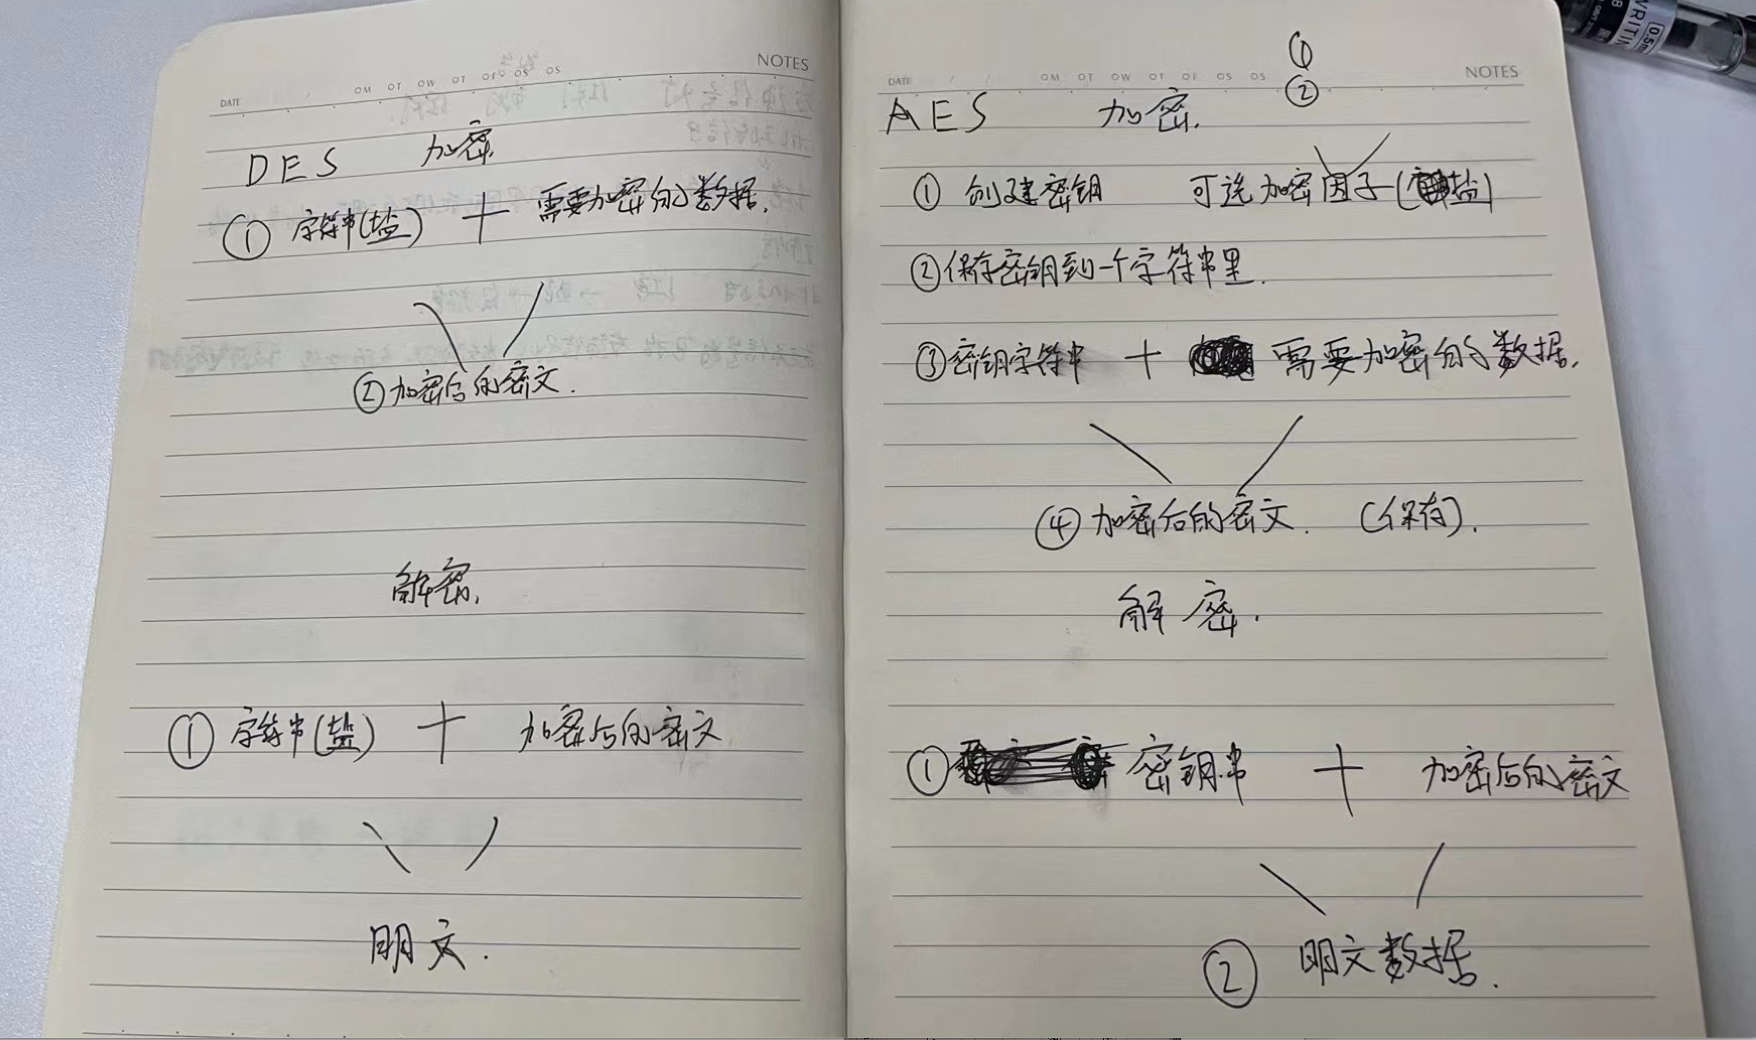 DATE OM OT OW OT OF OS OS NOTES
DES 加密
① 字符串(盐) + 需要加密的数据.
② 加密后的密文.
解密.
① 字符串(盐) + 加密后的密文
明文.
①
DATE / / OM OT OW OT OF OS OS ② NOTES
AES 加密.
① 创建密钥 可选加密因子(盐)
② 保存密钥到一个字符串里.
③ 密钥字符串 + 需要加密的数据.
④ 加密后的密文. (保存).
解密.
① 密钥串 + 加密后的密文
② 明文数据.